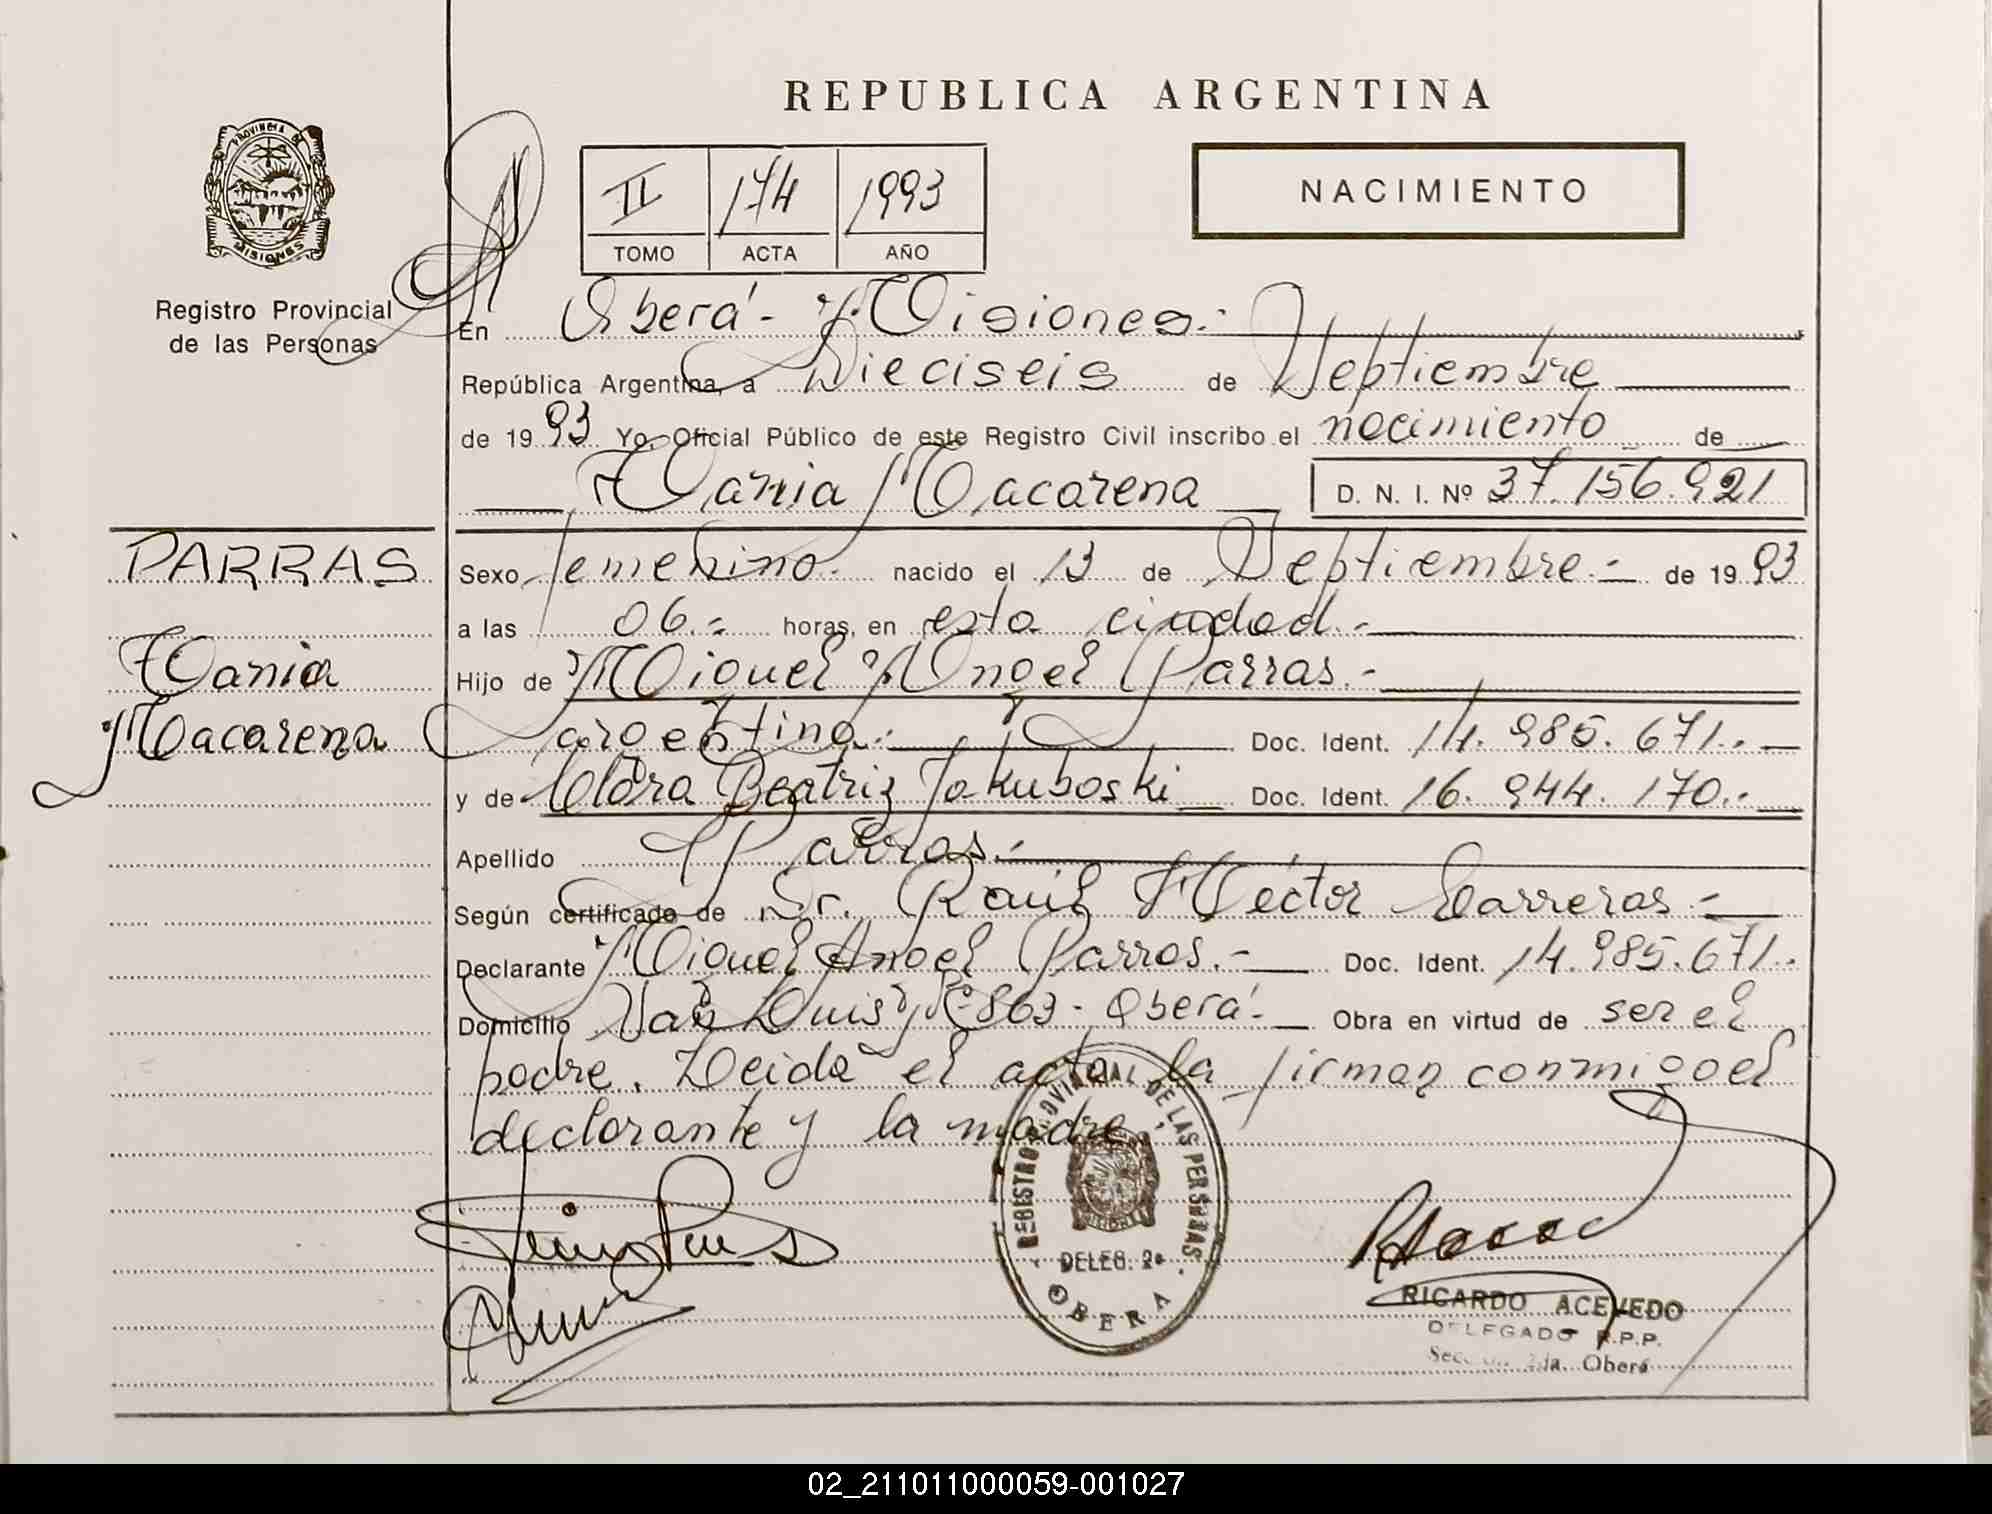 REPUBLICA ARGENTINA
PROVINCIA DE
MISIONES
Registro Provincial
de las Personas
II 174 1993
TOMO ACTA AÑO
NACIMIENTO
En Oberá - Misiones.-
República Argentina, a Dieciseis de Septiembre
de 1993 Yo, Oficial Público de este Registro Civil inscribo el nacimiento de
Vania Macarena D. N. I. Nº 37.156.921
PARRAS
Vania
Macarena
Sexo femenino.- nacido el 13 de Septiembre.- de 1993
a las 06.- horas, en esta ciudad.-
Hijo de Miguel Angel Parras.-
argentino.- Doc. Ident. 14.985.671.-
y de Clara Beatriz Jakuboski Doc. Ident. 16.944.170.-
Apellido Parras.-
Según certificado de Dr. Raúl Héctor Carreras.-
Declarante Miguel Angel Parras.- Doc. Ident. 14.985.671.-
Domicilio San Luis Nº 863 - Oberá.- Obra en virtud de ser el
padre. Leida el acta, la firman conmigo el
declarante y la madre.
REGISTRO PROVINCIAL DE LAS PERSONAS
MISIONES
DELEG. 2a
OBERA
RICARDO ACEVEDO
DELEGADO R.P.P.
Sección 2da. Oberá
02_211011000059-001027